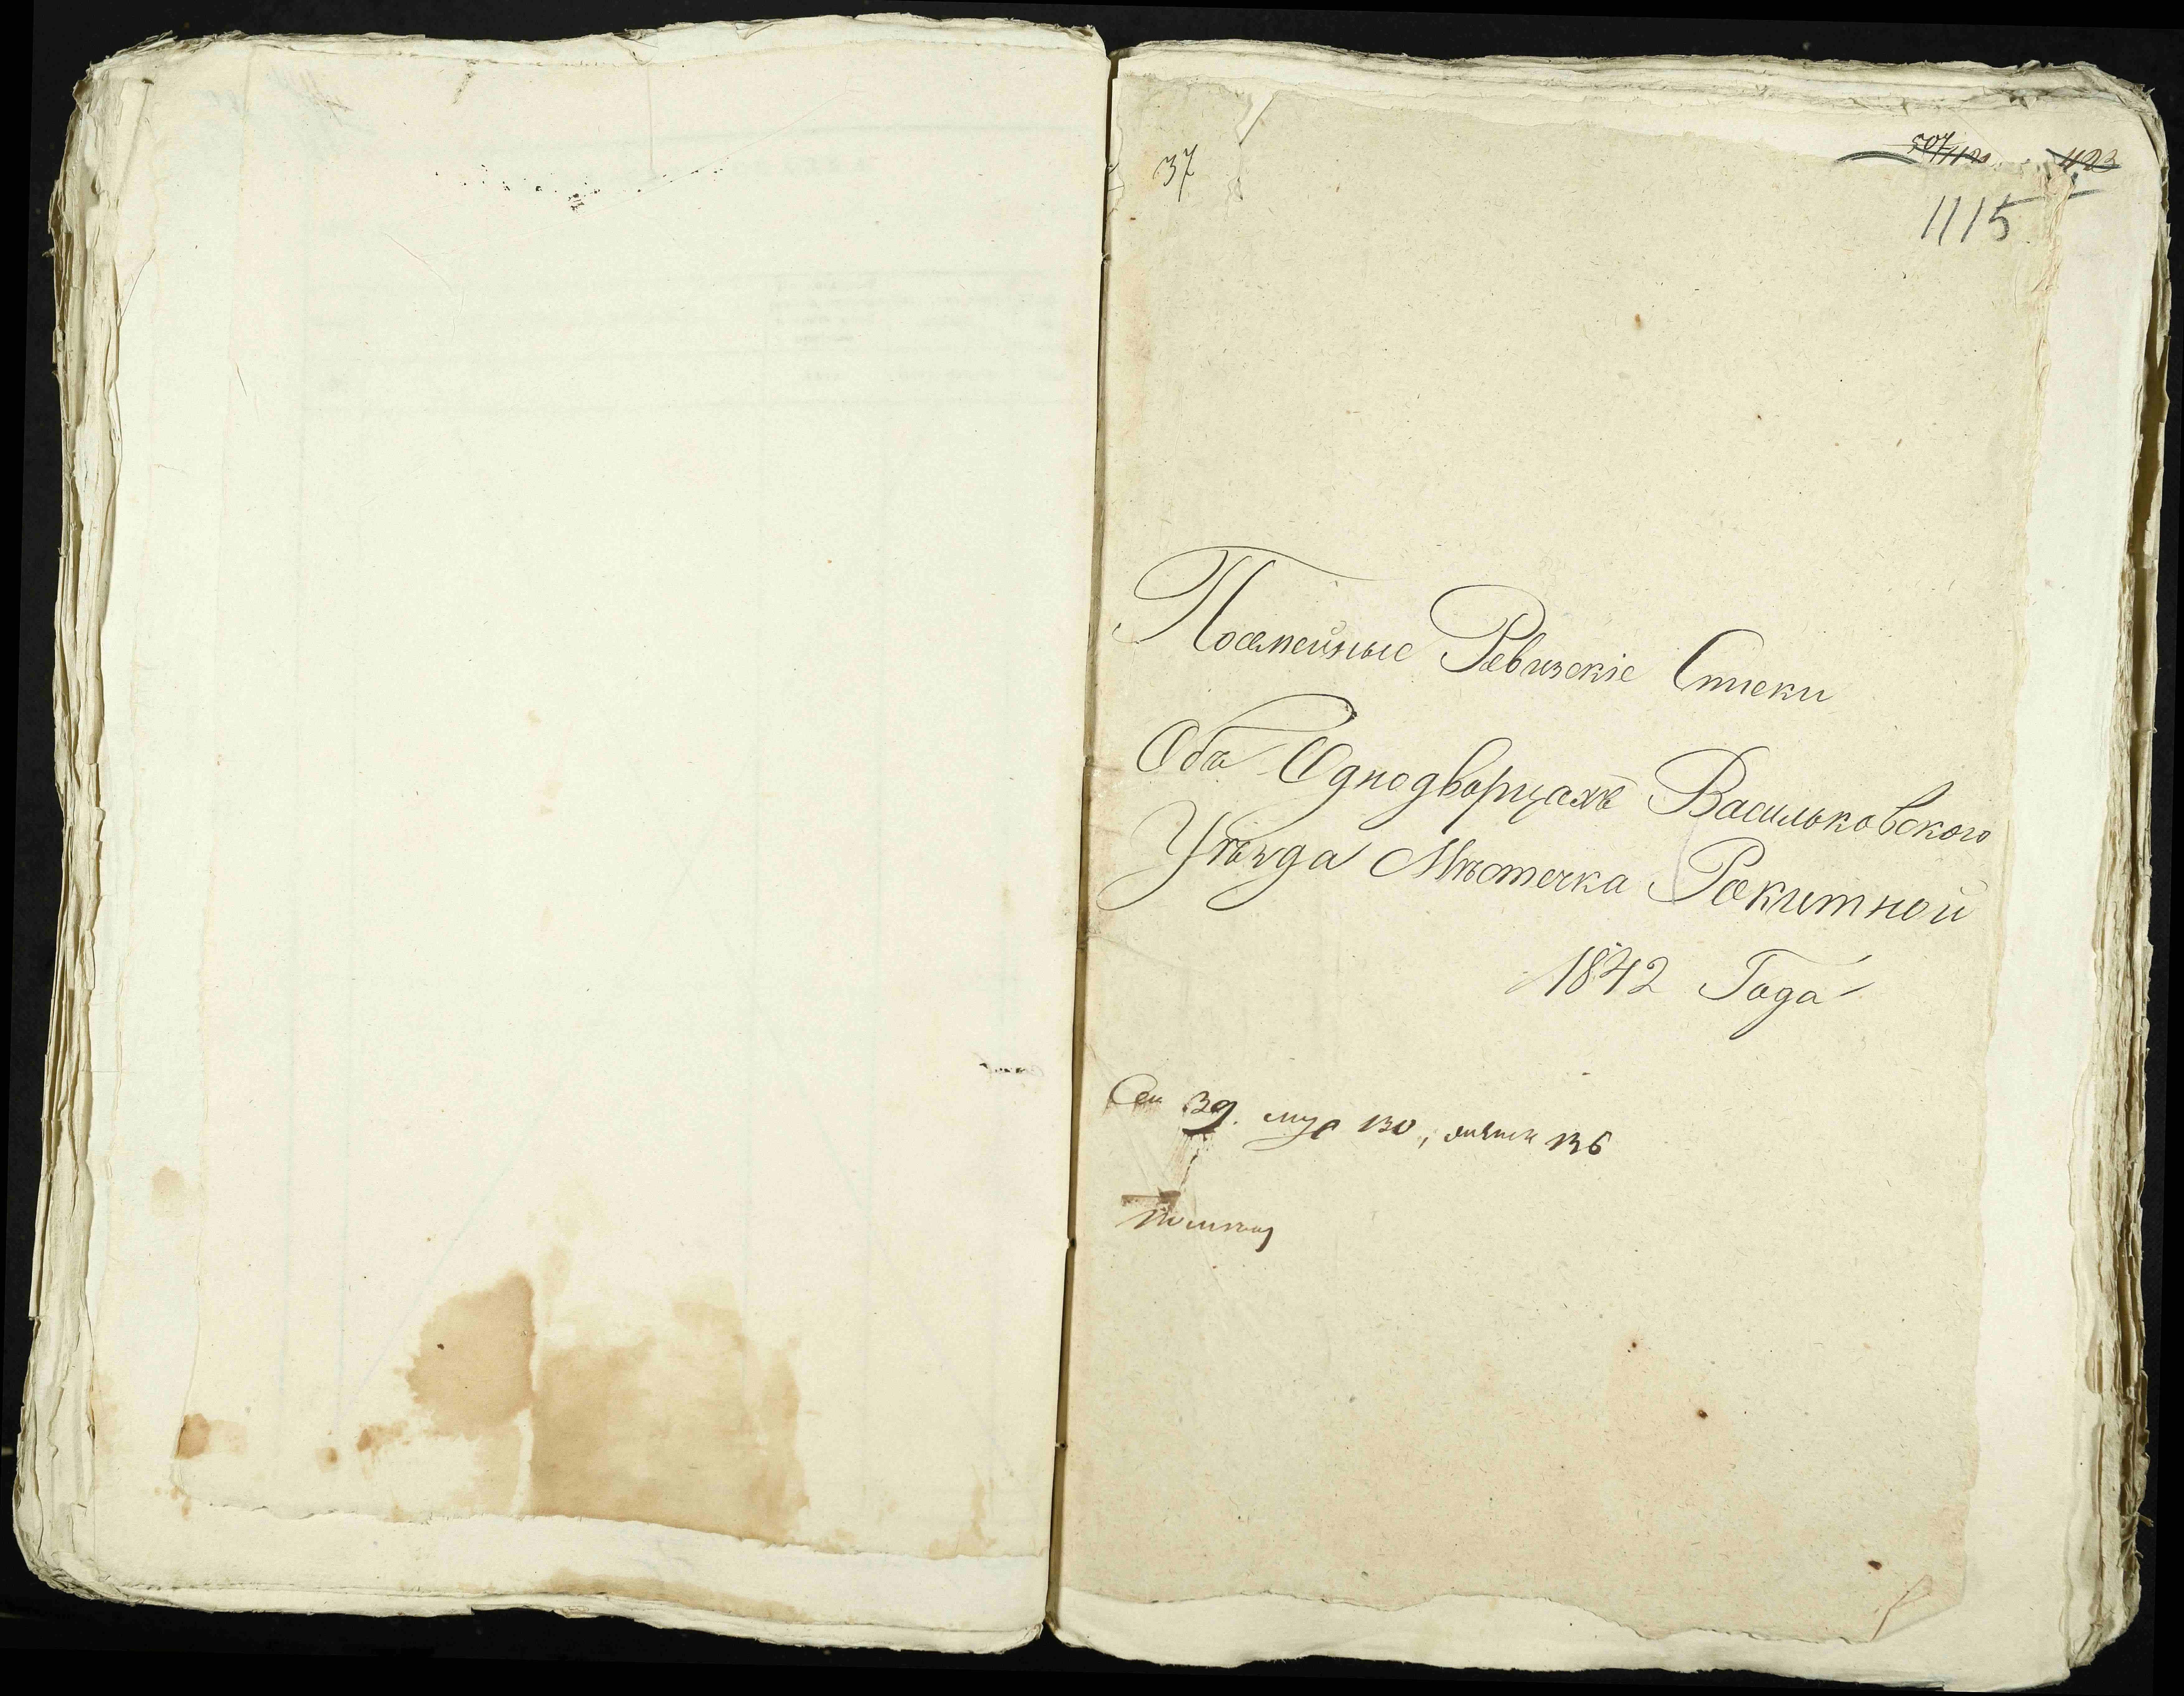 37
1115
Посемейные Ревизскіе Списки
Объ Однодворцахъ Васильковского
Уѣзда Мѣстечка Ракитной
1842 Года
Сем 39. муж 130, женск 136